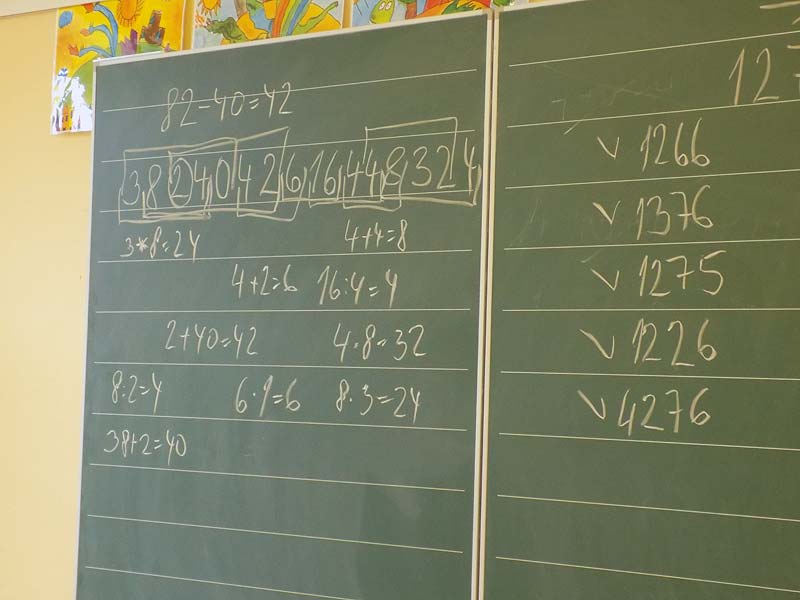 82-40=42
3 8 2 4 0 4 2 6 16 4 4 8 3 2 4
3*8=24 4+4=8
4+2=6 16:4=4
2+40=42 4·8=32
8:2=4 6·1=6 8·3=24
38+2=40
127
v 1266
v 1376
v 1275
v 1226
v 4276